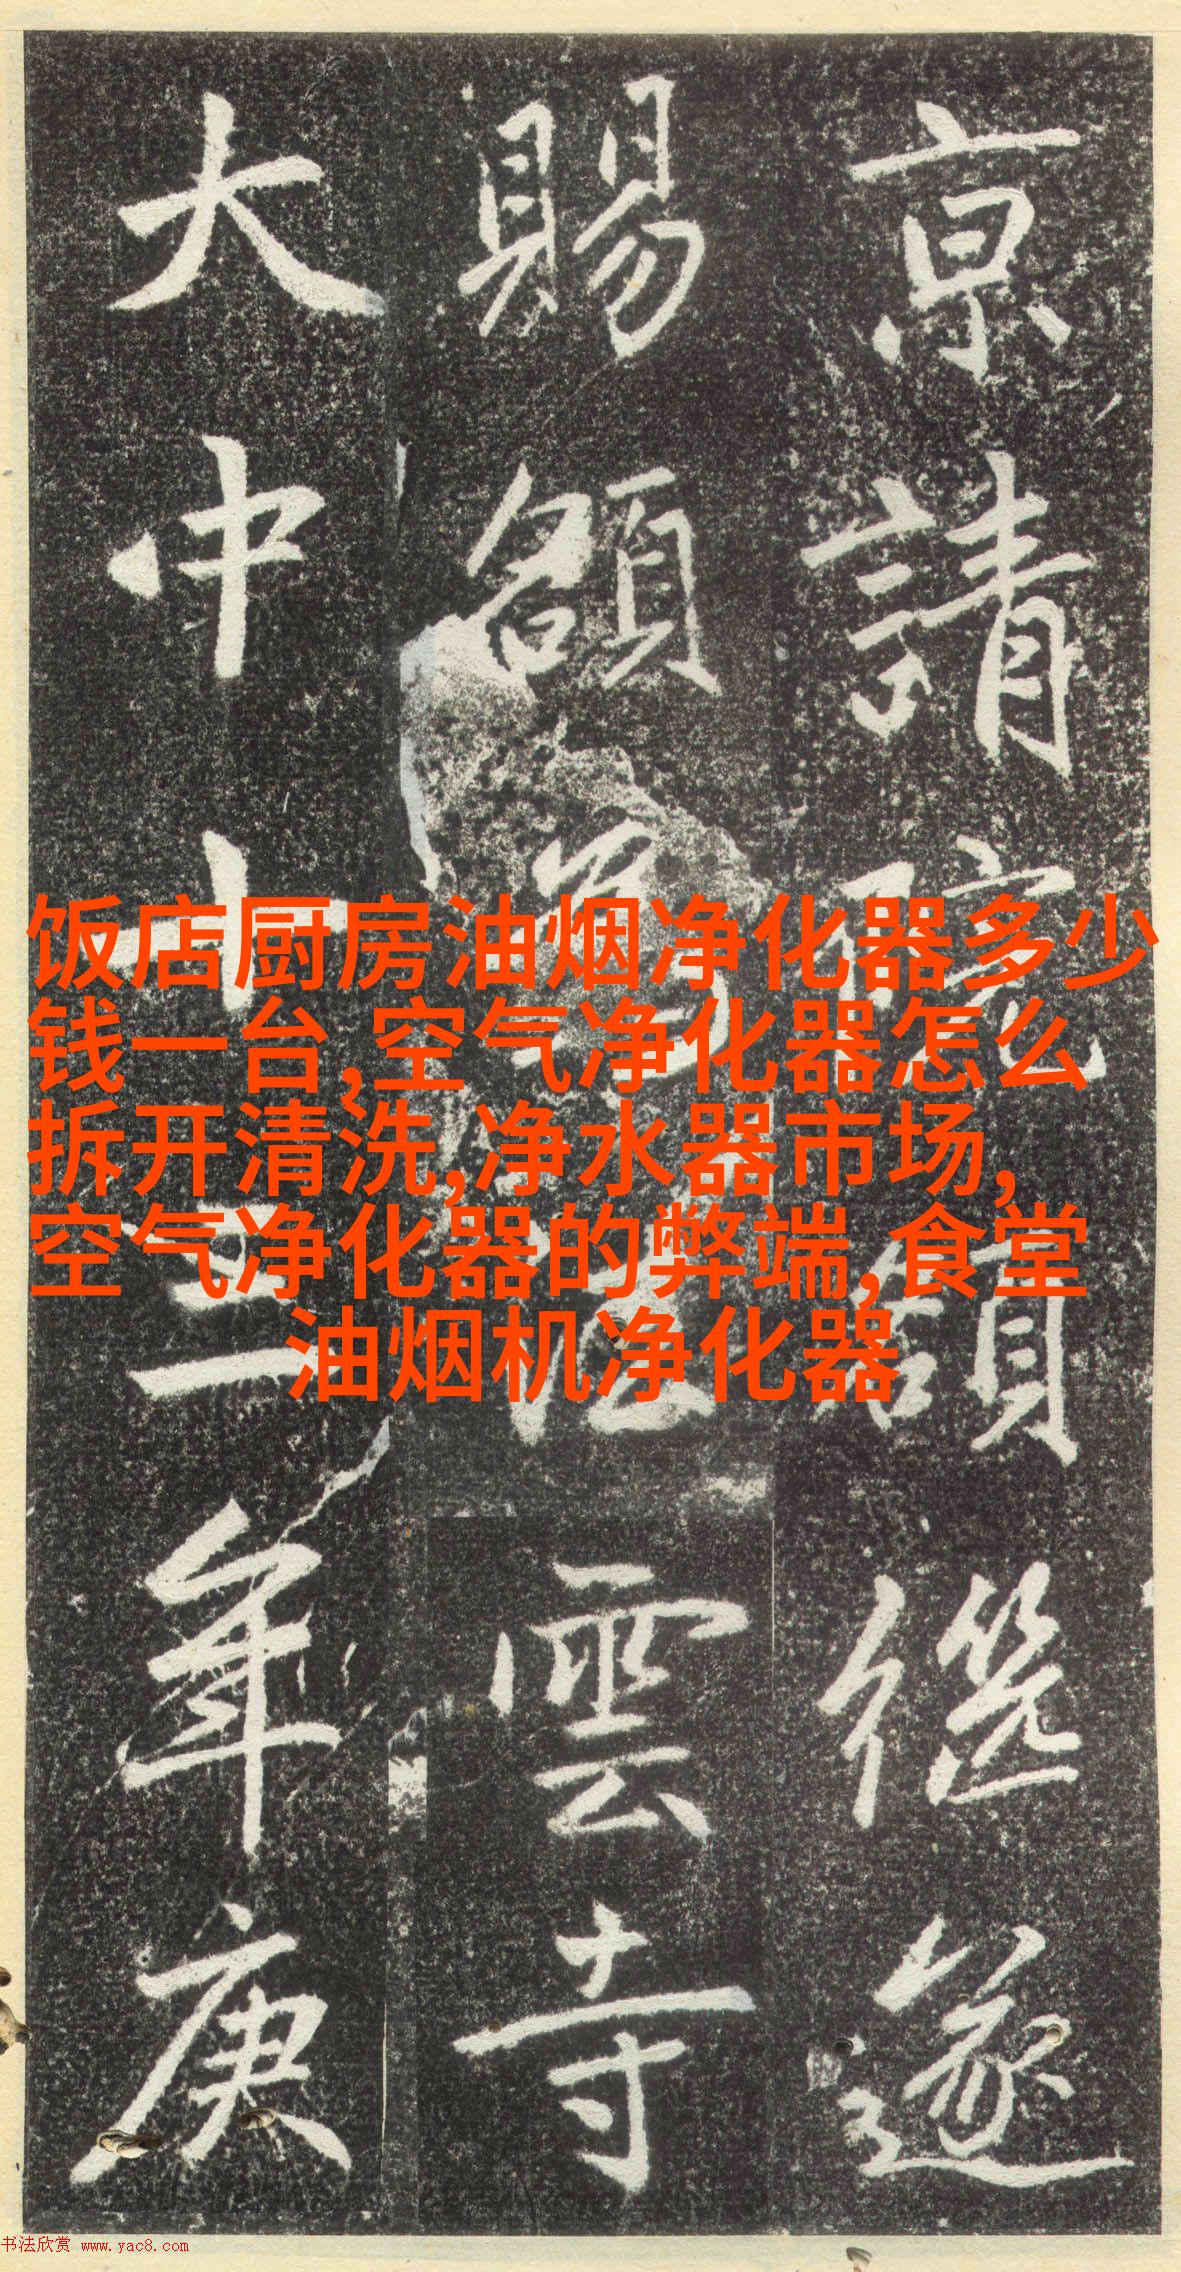 京請院額遂
賜額為法雲寺
大中十三年庚
饭店厨房油烟净化器多少
钱一台,空气净化器怎么
拆开清洗,净水器市场,
空气净化器的弊端,食堂
油烟机净化器
书法欣赏 www.yac8.com